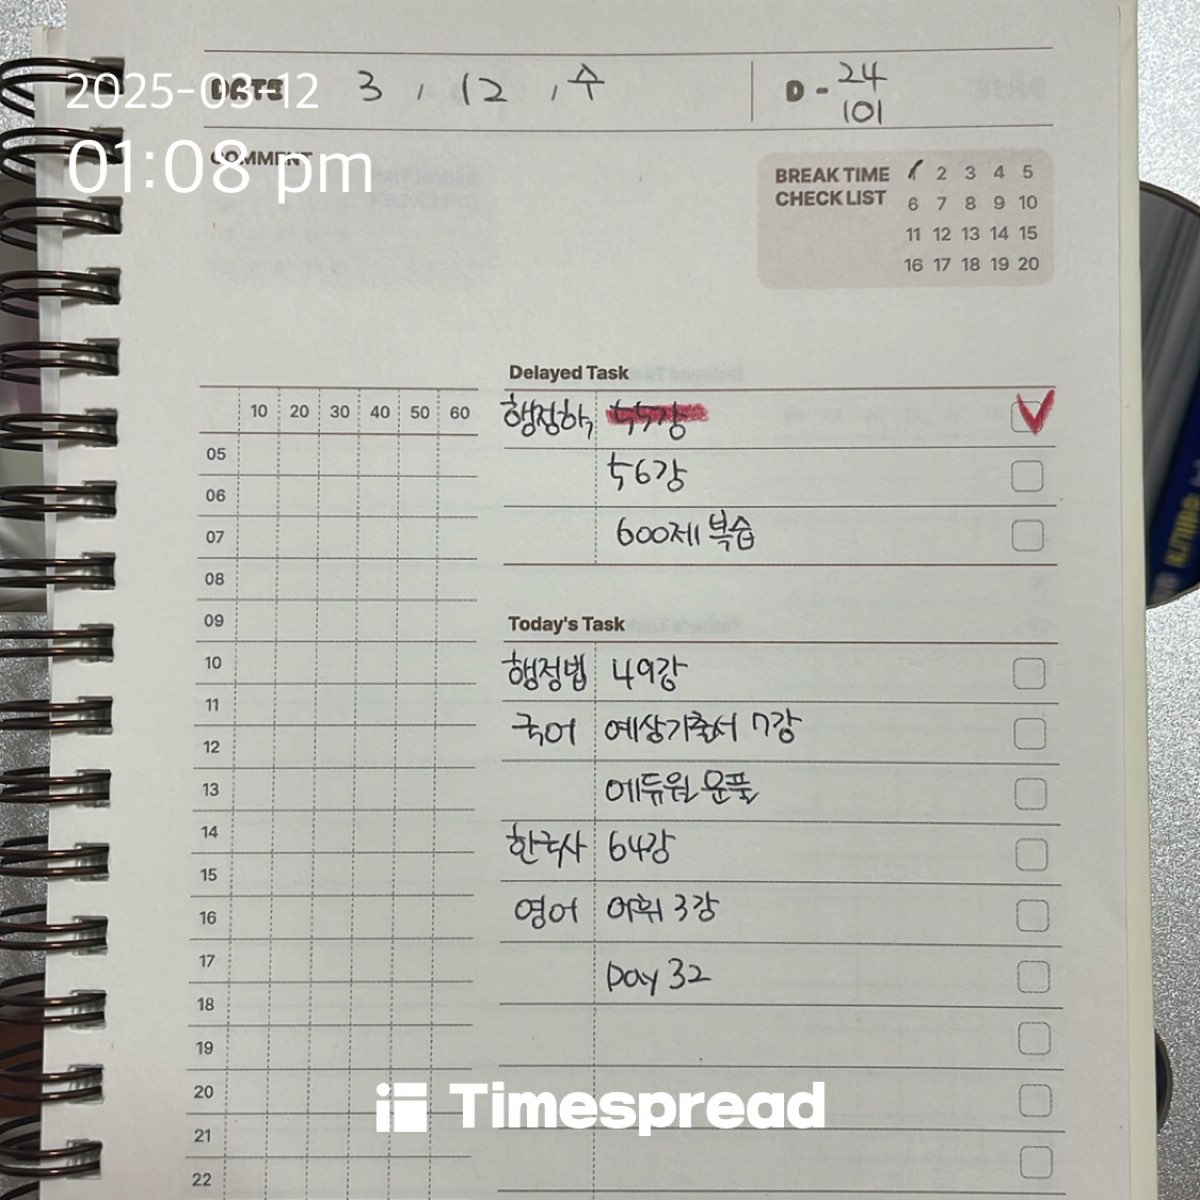 2025-03-12
01:08 pm
DATE 3 , 12 , 수
D - 24
101
COMMENT
BREAK TIME
CHECK LIST
1 2 3 4 5
6 7 8 9 10
11 12 13 14 15
16 17 18 19 20
Delayed Task
행정학 55강
56강
600제 복습
10 20 30 40 50 60
05
06
07
08
09
10
11
12
13
14
15
16
17
18
19
20
21
22
Today's Task
행정법 49강
국어 예상기출서 7강
에듀윌 문풀
한국사 64강
영어 어휘 3강
Day 32
Timespread